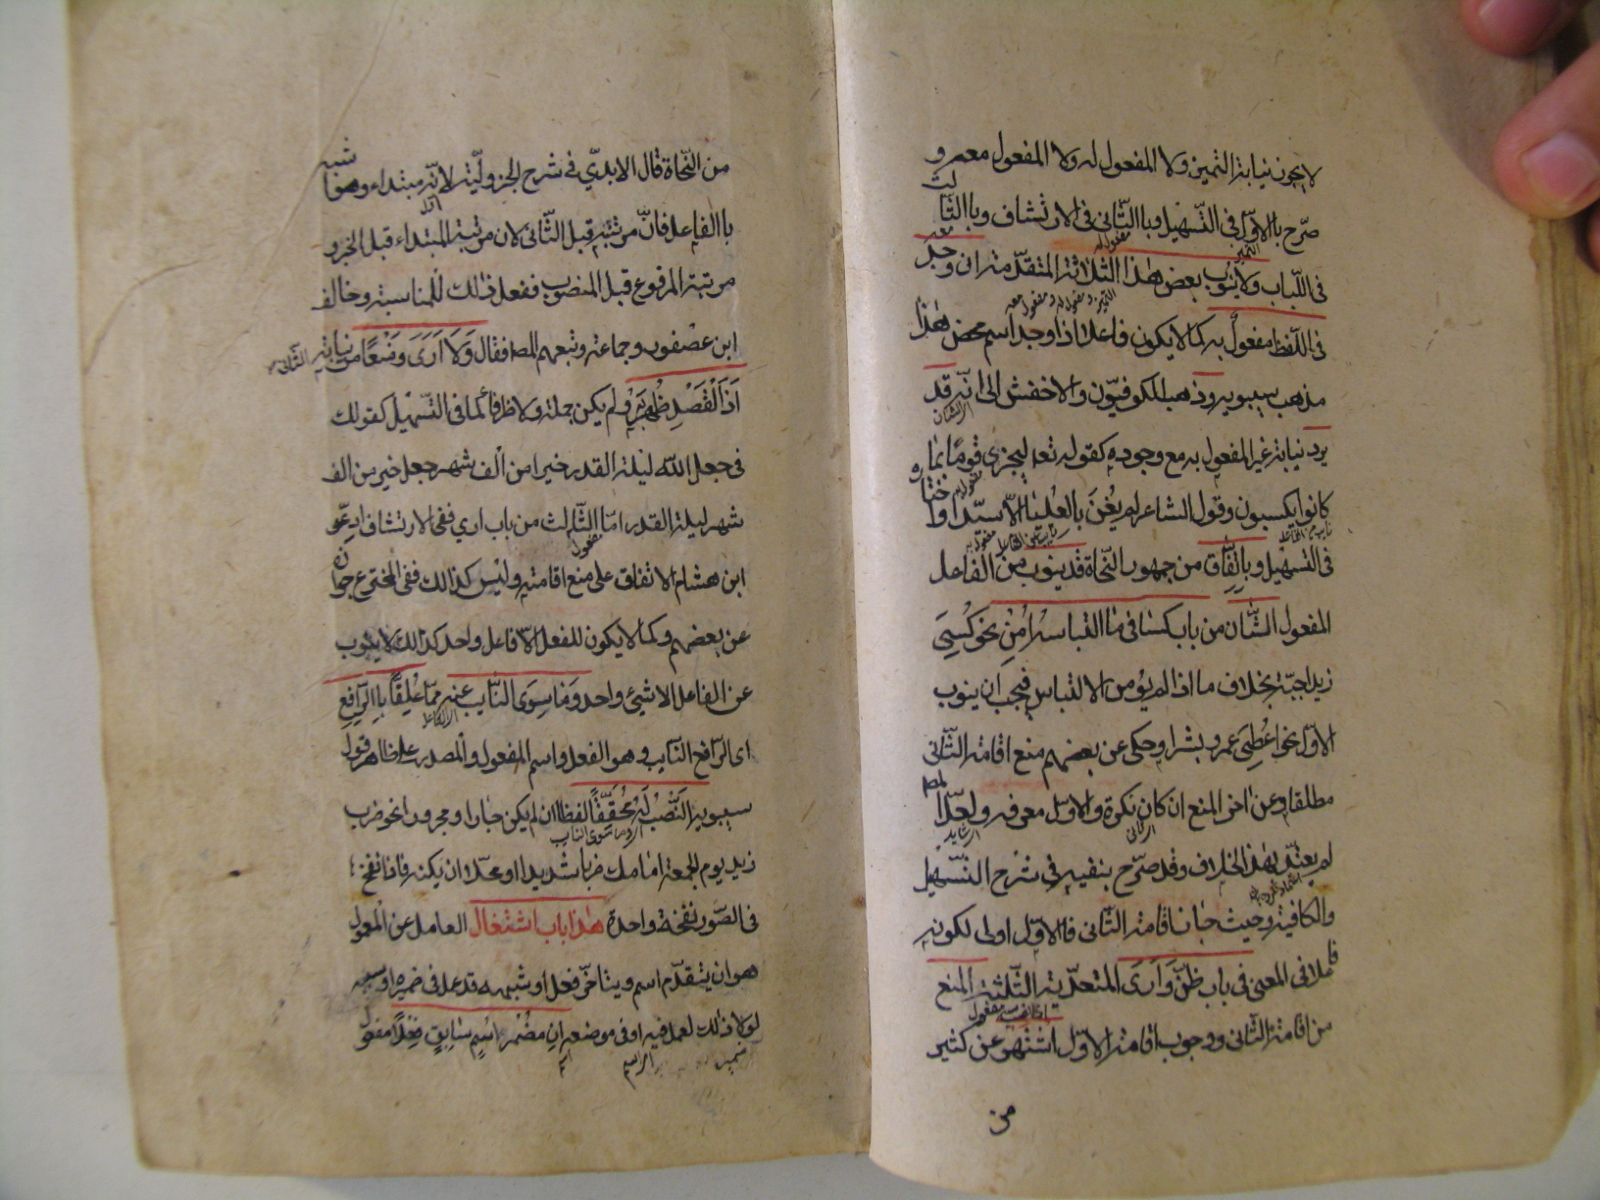 لا يجوز نيابة التميز ولا المفعول له ولا المفعول معه و
صرّح بالاوّل فى التّسهيل وبالثّانى فى الارتشاف وبالثّالث
فى اللّباب ولا ينوب بعض هذا الثّلاثة المتقدّمة ان وجد
فى اللّفظ مفعول به كما لا يكون فاعلا اذا وجد اسم محض هذا
مذهب سيبويه وذهب الكوفيّون والاخفش الى انّه قد
يرد نيابة غير المفعول به مع وجوده كقوله تعه ليجزى قومًا بما
كانوا يكسبون وقول الشاعر لم يُعْنَ بالعُليٰا الّا سيّدا واختاره
فى التسهيل وباتّفاق من جمهور النّحاة قد ينوب من الفاعل
المفعول الثّان من باب كسٰا فى مٰا التباسه اُمِنْ نحو كُسِىَ
زيدا جبّة بخلاف ما اذا لم يؤمن الالتباس فيجب ان ينوب
الاوّل نحو اُعْطِىَ عمرو بشرا وحكى عن بعضهم منع اقامة الثّانى
مطلقا وعن اخر المنع ان كان نكرة والاوّل معرفه ولعلّ المصـ
لم يعتدّ بهذا الخلاف وقد صرّح بنفيه فى شرح التّسهيل
والكافية وحيث جٰاز اقامة الثّانى فالاوّل اولى لكونه
فاعلا فى المعنى فى باب ظَنَّ وَاَرىَ المتعدّية الثّلثة المنع
من اقامة الثّانى ووجوب اقامة الاوّل اشتهر عن كثير
من
من النّحاة قال الابدىّ فى شرح الجزوليّة لانّه مبتداء وهو شبه
بالفاعل فانّ مرتبته قبل الثّانى لان مرتبة المبتداء قبل الخبر و
مرتبة المرفوع قبل المنصوب ففعل ذلك للمناسبة وخالف
ابن عصفور وجماعة وتبعهم المصـ فقال وَلَا اَرىَ وَمَنْعًا من نيابة الثّانى
اِذَا القَصْد ظَهَرَ ولم يكن جملة ولا ظرفا كما فى التّسهيل كقولك
فى جعل اللّه ليلة القدر خيرا من الف شهر جعل خير من الف
شهر ليلة القدر امّا الثّالث من باب ارى ففى الارتشاف ادّعى
ابن هشام الاتفاق على منع اقامته وليس كذلك ففى المخترع جوازه
عن بعضهم وكما لا يكون للفعل الّا فاعل واحد كذلك لا ينوب
عن الفاعل الا شيئ واحد وَمٰا سِوَى النّايب عنه ممّا عُلِّقًا باِلرّافِعِ
اى الرّافع النّايب وهو الفعل واسم المفعول والمصدر على ظاهر قول
سيبويه النَّصْبُ لَهُ مُحَقَّقًا لفظا ان لم يكن جارا ومجرورا نحو ضرب
زيد يوم الجمعة امامك ضربا شديدا او محلّا ان يكنه فاذا نفخ
فى الصّور نفخة واحدة هذا باب اشتغال العامل عن المعمول
هو ان يتقدّم اسم ويتاخّر فعل او شبهه قد عمل فى ضميره او سببه
لولا ذلك لعمل فيه او فى موضعه اِن مُضْمَرُ اسْمٍ سٰابِقٍ فِعْلًا مفعول